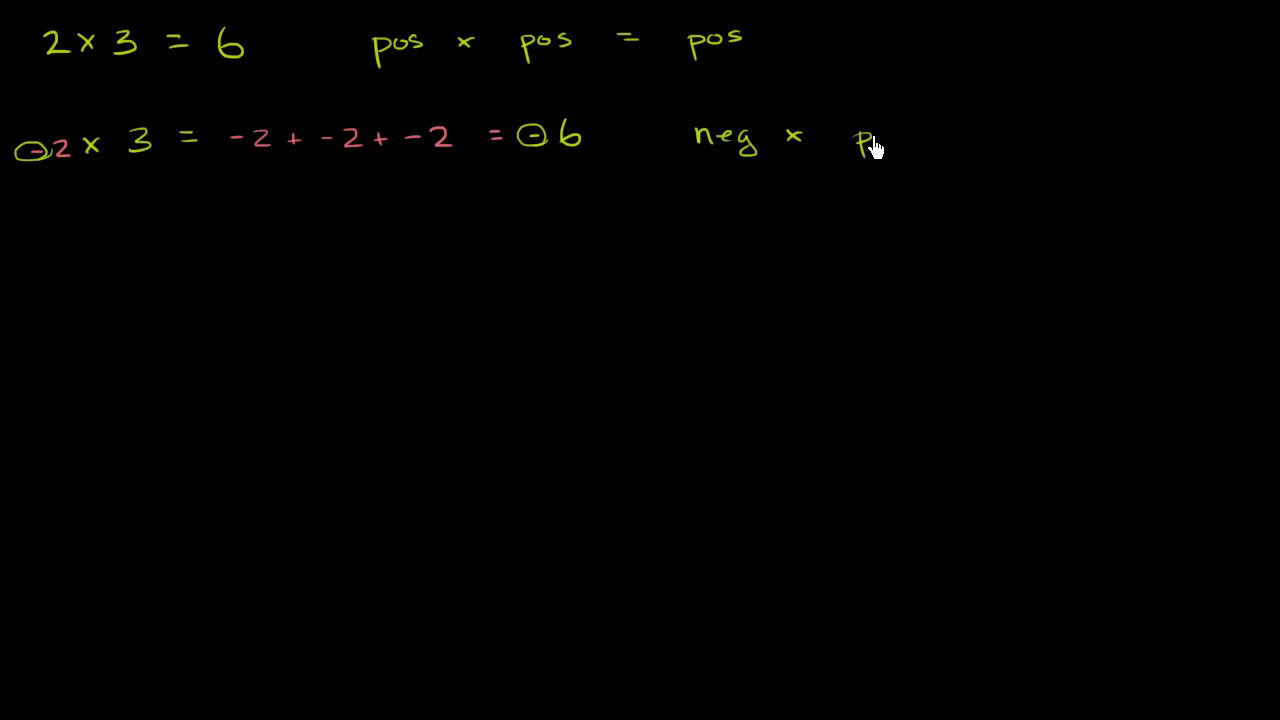 2 × 3 = 6 pos × pos = pos
-2 × 3 = -2 + -2 + -2 = -6 neg × p